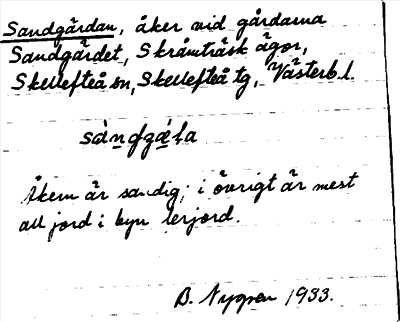 Sandgärdan, åker vid gårdarna
Sandgärdet, Skråmträsk ägor,
Skellefteå sn, Skellefteå tg, Västerb. l.
Åkern är sandig; i övrigt är mest
all jord i byn lerjord.
B. Nygren 1933.